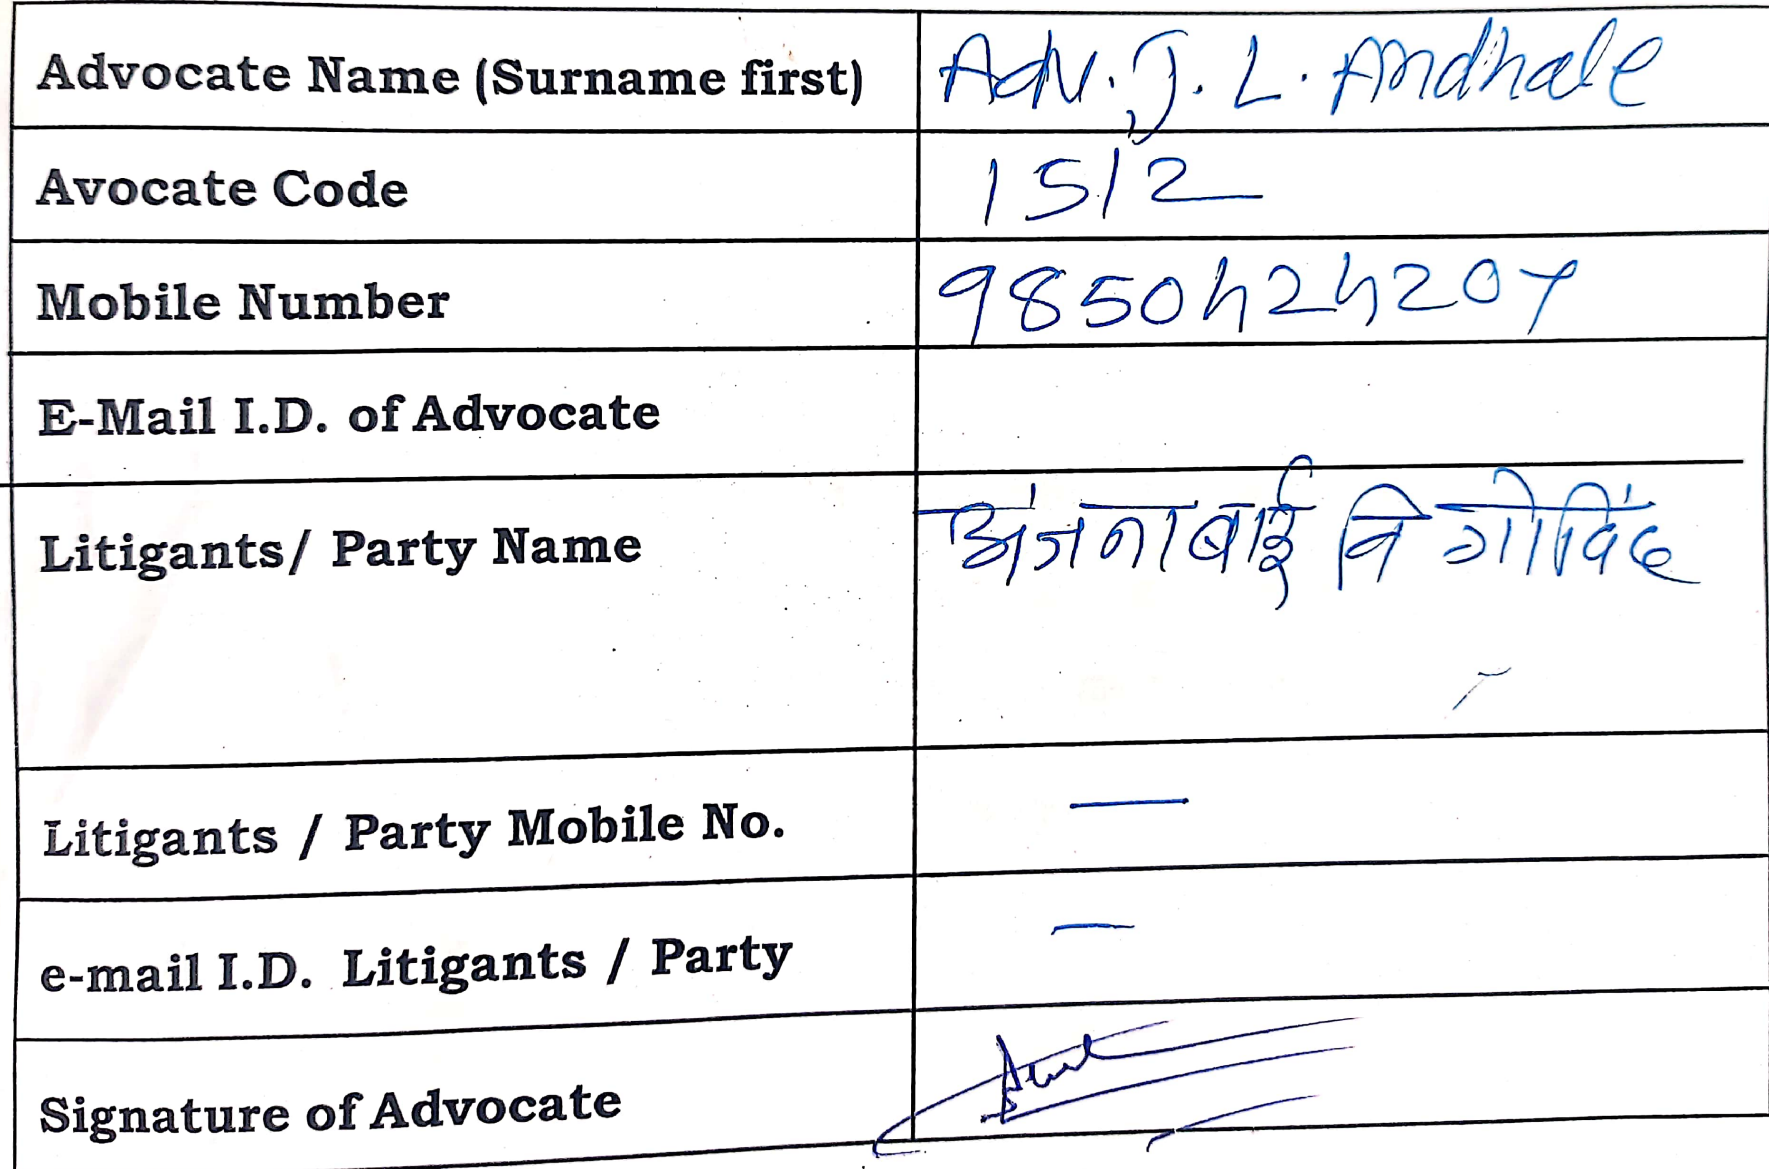 Advocate Name (Surname first) Adv. J. L. Andhale
Avocate Code 1512
Mobile Number 9850424207
E-Mail I.D. of Advocate
Litigants/ Party Name अंजनाबाई वि गोविंद
Litigants / Party Mobile No. —
e-mail I.D. Litigants / Party —
Signature of Advocate